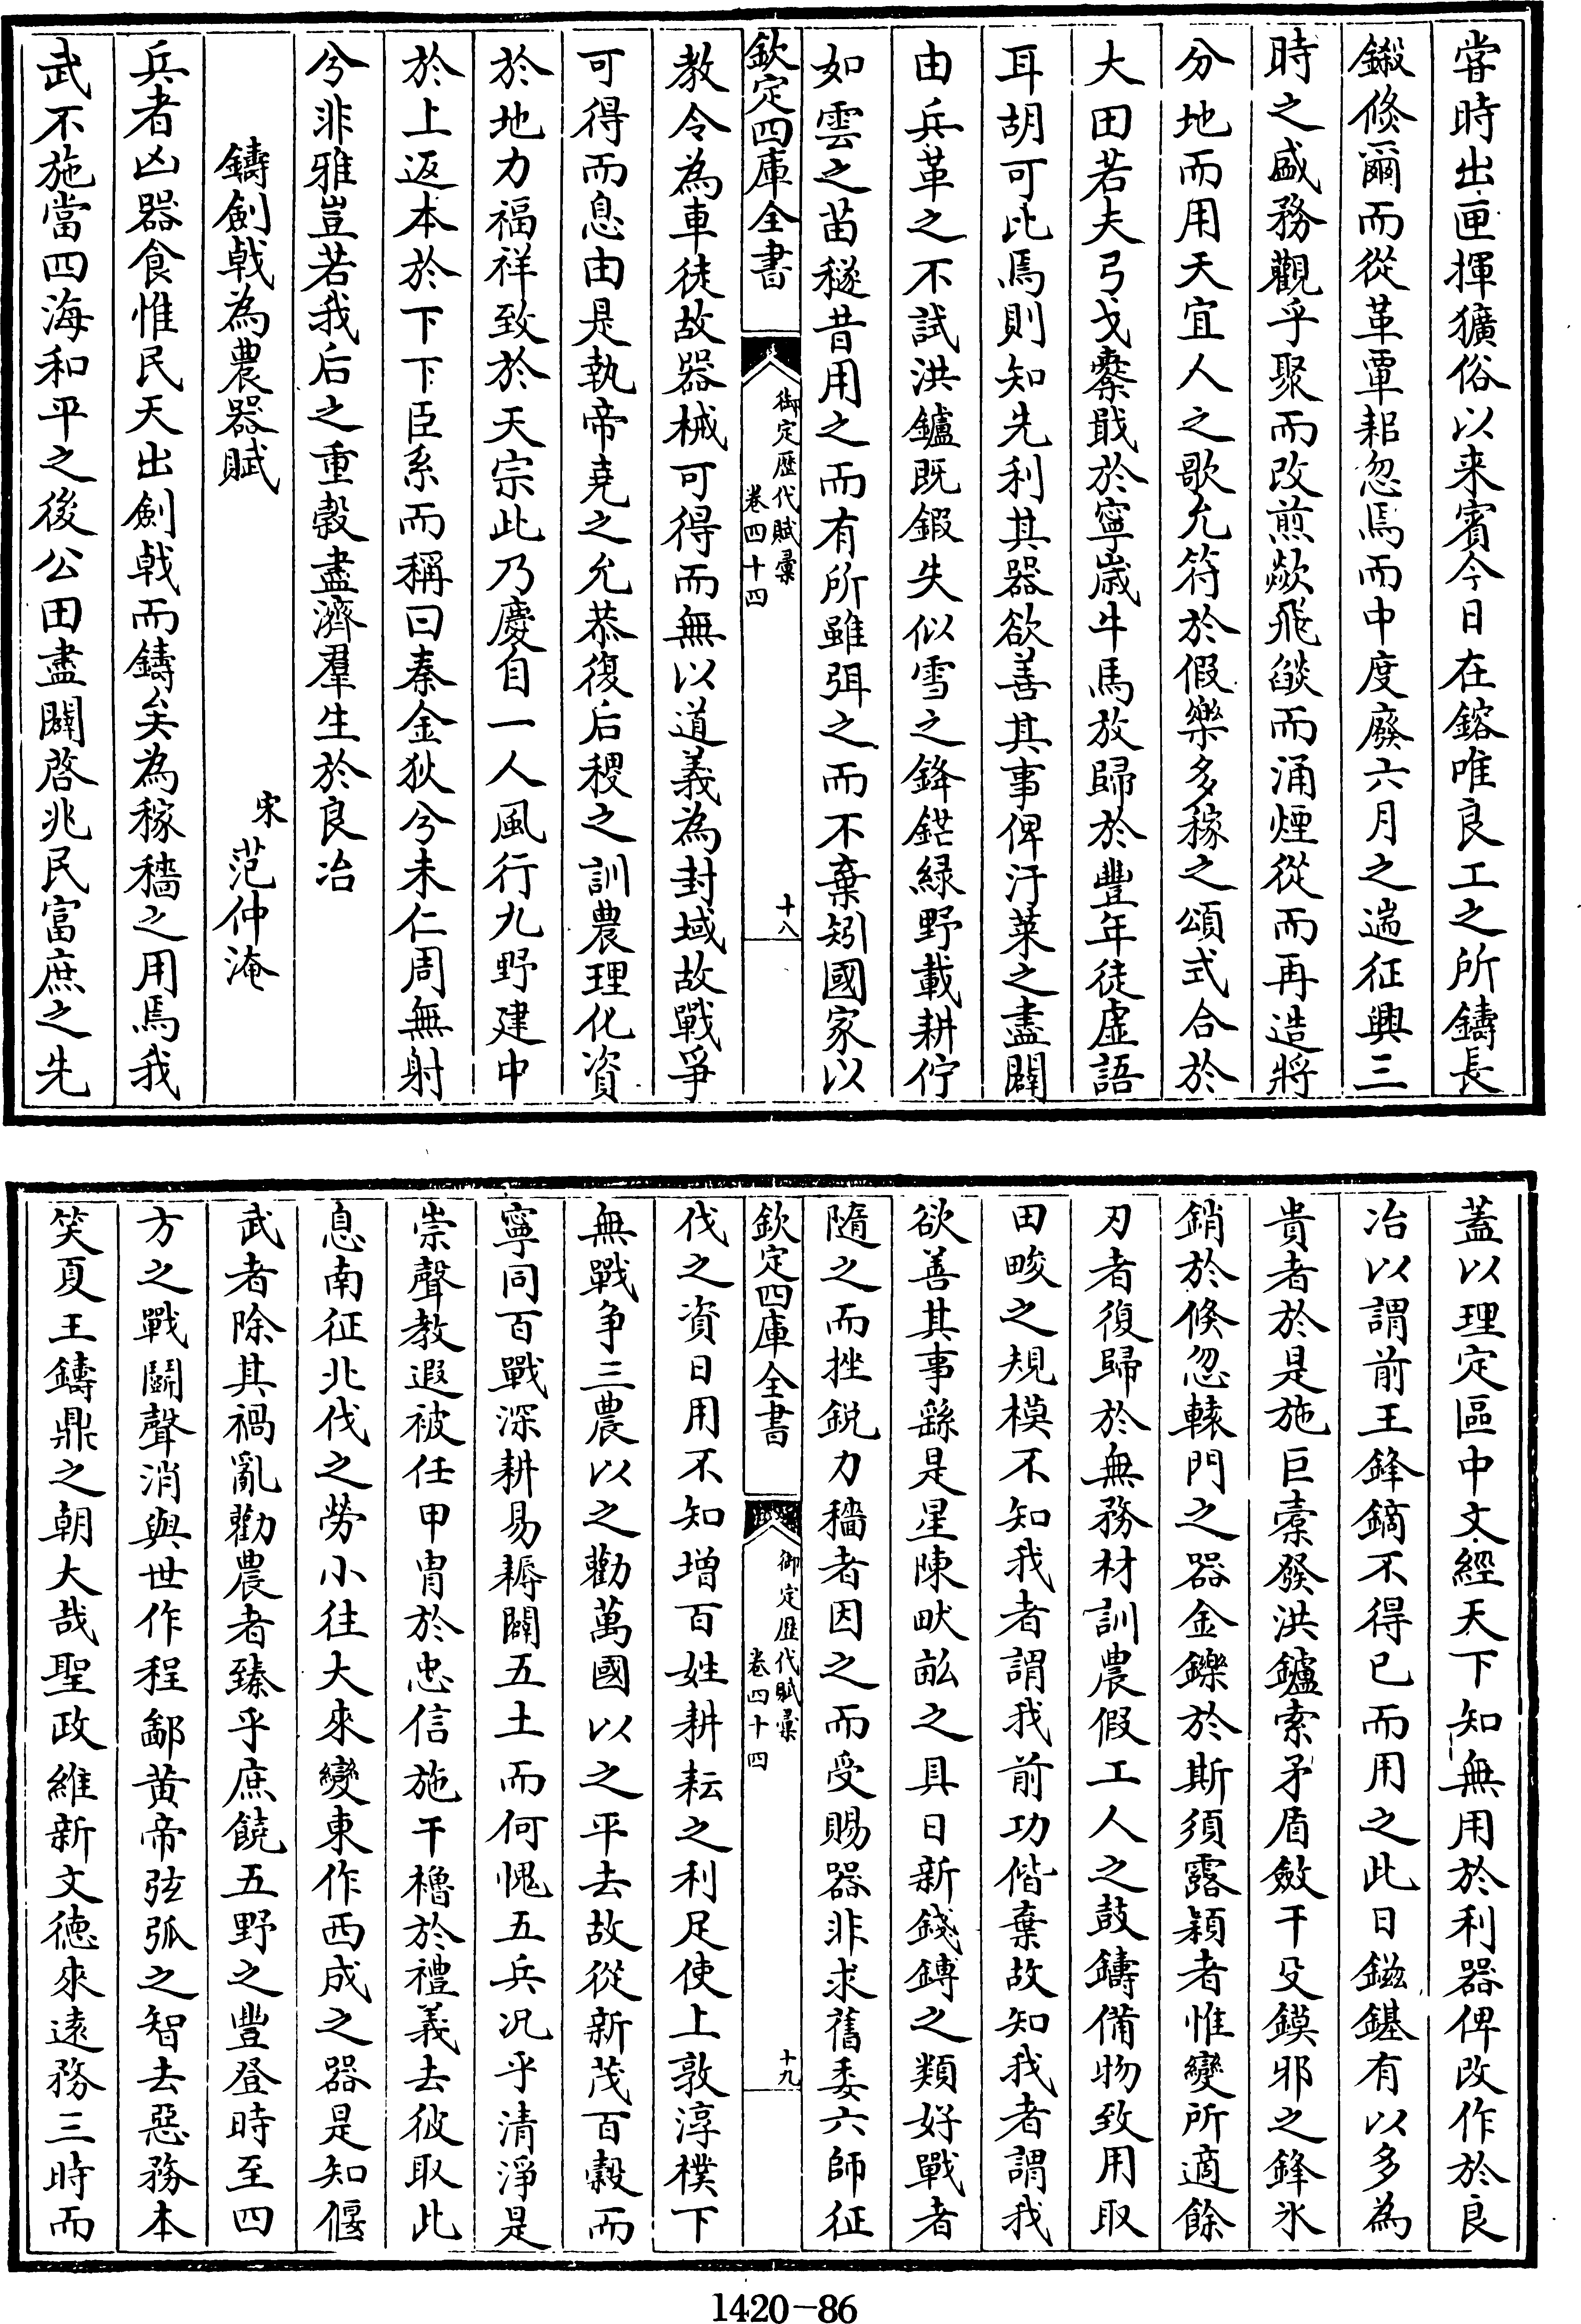 甞時出匣揮獷俗以来賓今日在鎔唯良工之所鑄長
鍛倏爾而從革覃耜忽焉而中度廢六月之遄征興三
時之盛務觀乎聚而改煎歘飛燄而涌煙從而再造將
分地而用天宜人之歌允符於假樂多稼之頌式合於
大田若夫弓戈櫜戢於寧歳牛馬放歸於豐年徒虛語
耳胡可比焉則知先利其器欲善其事俾汙萊之盡闢
由兵革之不試洪鑪既鍜失似雪之鋒鋩緑野載耕佇
如雲之苗穟昔用之而有所雖弭之而不棄矧國家以
欽定四庫全書
御定歴代賦彙
卷四十四
十八
教令為車徒故器械可得而無以道義為封域故戰爭
可得而息由是執帝堯之允恭復后稷之訓農理化資
於地力福祥致於天宗此乃慶自一人風行九野建中
於上返本於下下臣系而稱曰秦金狄兮未仁周無射
兮非雅豈若我后之重穀盡濟羣生於良冶
鑄劍戟為農器賦
宋范仲淹
兵者凶器食惟民天出劍戟而鑄矣為稼穡之用焉我
武不施當四海和平之後公田盡闢啓兆民富庶之先
蓋以理定區中文經天下知無用於利器俾改作於良
冶以謂前王鋒鏑不得已而用之此日鎡鎡有以多為
貴者於是施巨橐發洪鑪索矛盾斂干殳鏌邪之鋒氷
銷於倏忽轅門之器金鑠於斯須露穎者惟變所適餘
刃者復歸於無務材訓農假工人之鼓鑄備物致用取
田畯之規模不知我者謂我前功偕棄故知我者謂我
欲善其事繇是星陳畎畝之具日新錢鎛之類好戰者
隨之而挫鋭力穡者因之而受賜器非求舊委六師征
欽定四庫全書
御定歴代賦彙
卷四十四
十九
伐之資日用不知增百姓耕耘之利足使上敦淳樸下
無戰争三農以之勸萬國以之平去故從新茂百穀而
寧同百戰深耕易耨闢五土而何愧五兵況乎清淨是
崇聲教遐被任甲胄於忠信施干櫓於禮義去彼取此
息南征北伐之勞小往大來變東作西成之器是知偃
武者除其禍亂勸農者臻乎庶饒五野之豐登時至四
方之戰鬬聲消與世作程鄙黃帝弦弧之智去惡務本
笑夏王鑄鼎之朝大哉聖政維新文德來遠務三時而
1420-86